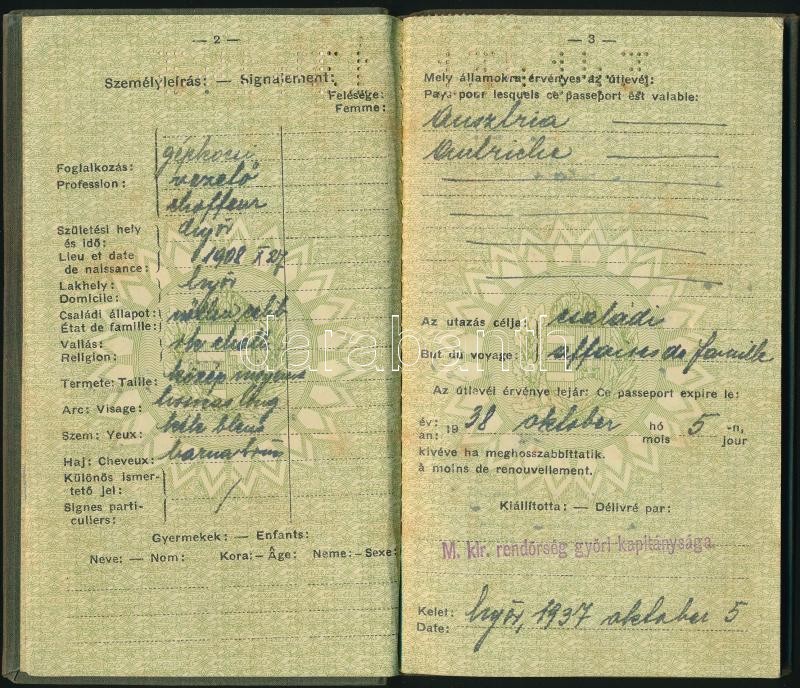 — 2 —
Személyleírás: — Signalement:
Felesége:
Femme:
Foglalkozás:
Profession:
gépkocsi
vezető
choffeur
Születési hely
és idő:
Lieu et date
de naissance:
Győr
1908 X 27
Lakhely:
Domicile:
Győr
Családi állapot:
État de famille:
Vallás:
Religion:
Termete: Taille:
közép moyenne
Arc: Visage:
hosszas long
Szem: Yeux:
kék bleus
Haj: Cheveux:
barna brun
Különös ismer-
tető jel:
Signes parti-
culiers:
/
Gyermekek: — Enfants:
Neve: — Nom: Kora: — Âge: Neme: — Sexe:
— 3 —
Mely államokra érvényes az útlevél:
Pays pour lesquels ce passeport est valable:
Ausztria
Autriche
Az utazás célja:
But du voyage:
családi
affaires de famille
Az útlevél érvénye lejár: Ce passeport expire le:
év: an: 1938 oktober hó mois 5 -n, jour
kivéve ha meghosszabbíttatik.
à moins de renouvellement.
Kiállította: — Délivré par:
M. kir. rendőrség győri kapitánysága
Kelet:
Date:
Győr, 1937 oktober 5
darabanth